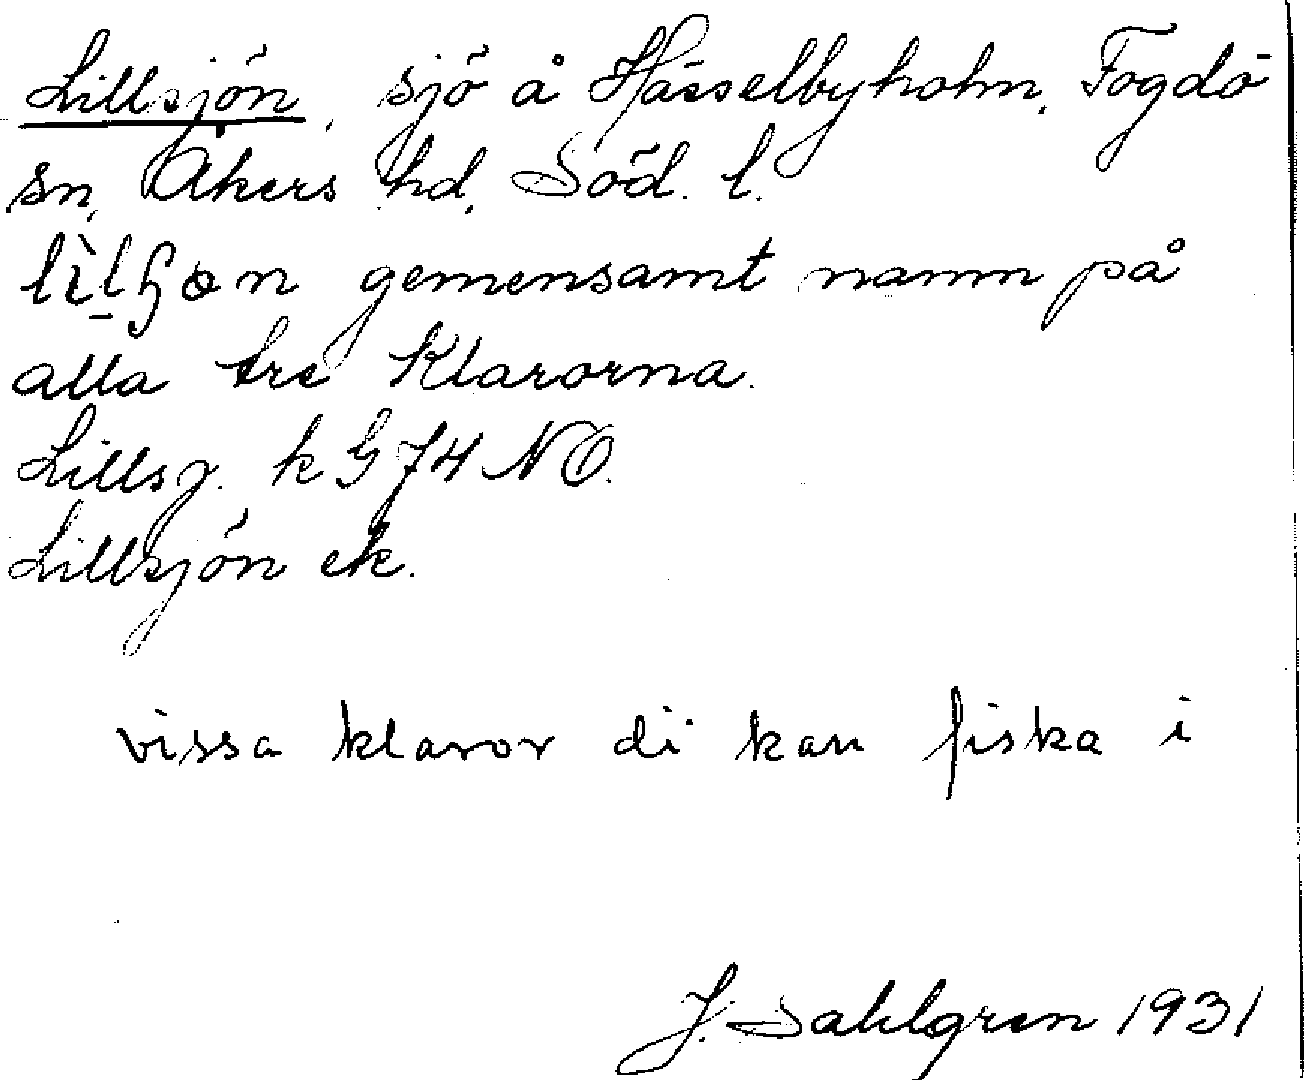 Lillsjön, sjö å Hässelbyholm, Fogdö
sn, Åkers hd, Söd. l.
gemensamt namn på
alla tre Klarorna.
Lillsj. k G 74 NO.
Lillsjön ek.
vissa klaror di kan fiska i
J. Sahlgren 1931